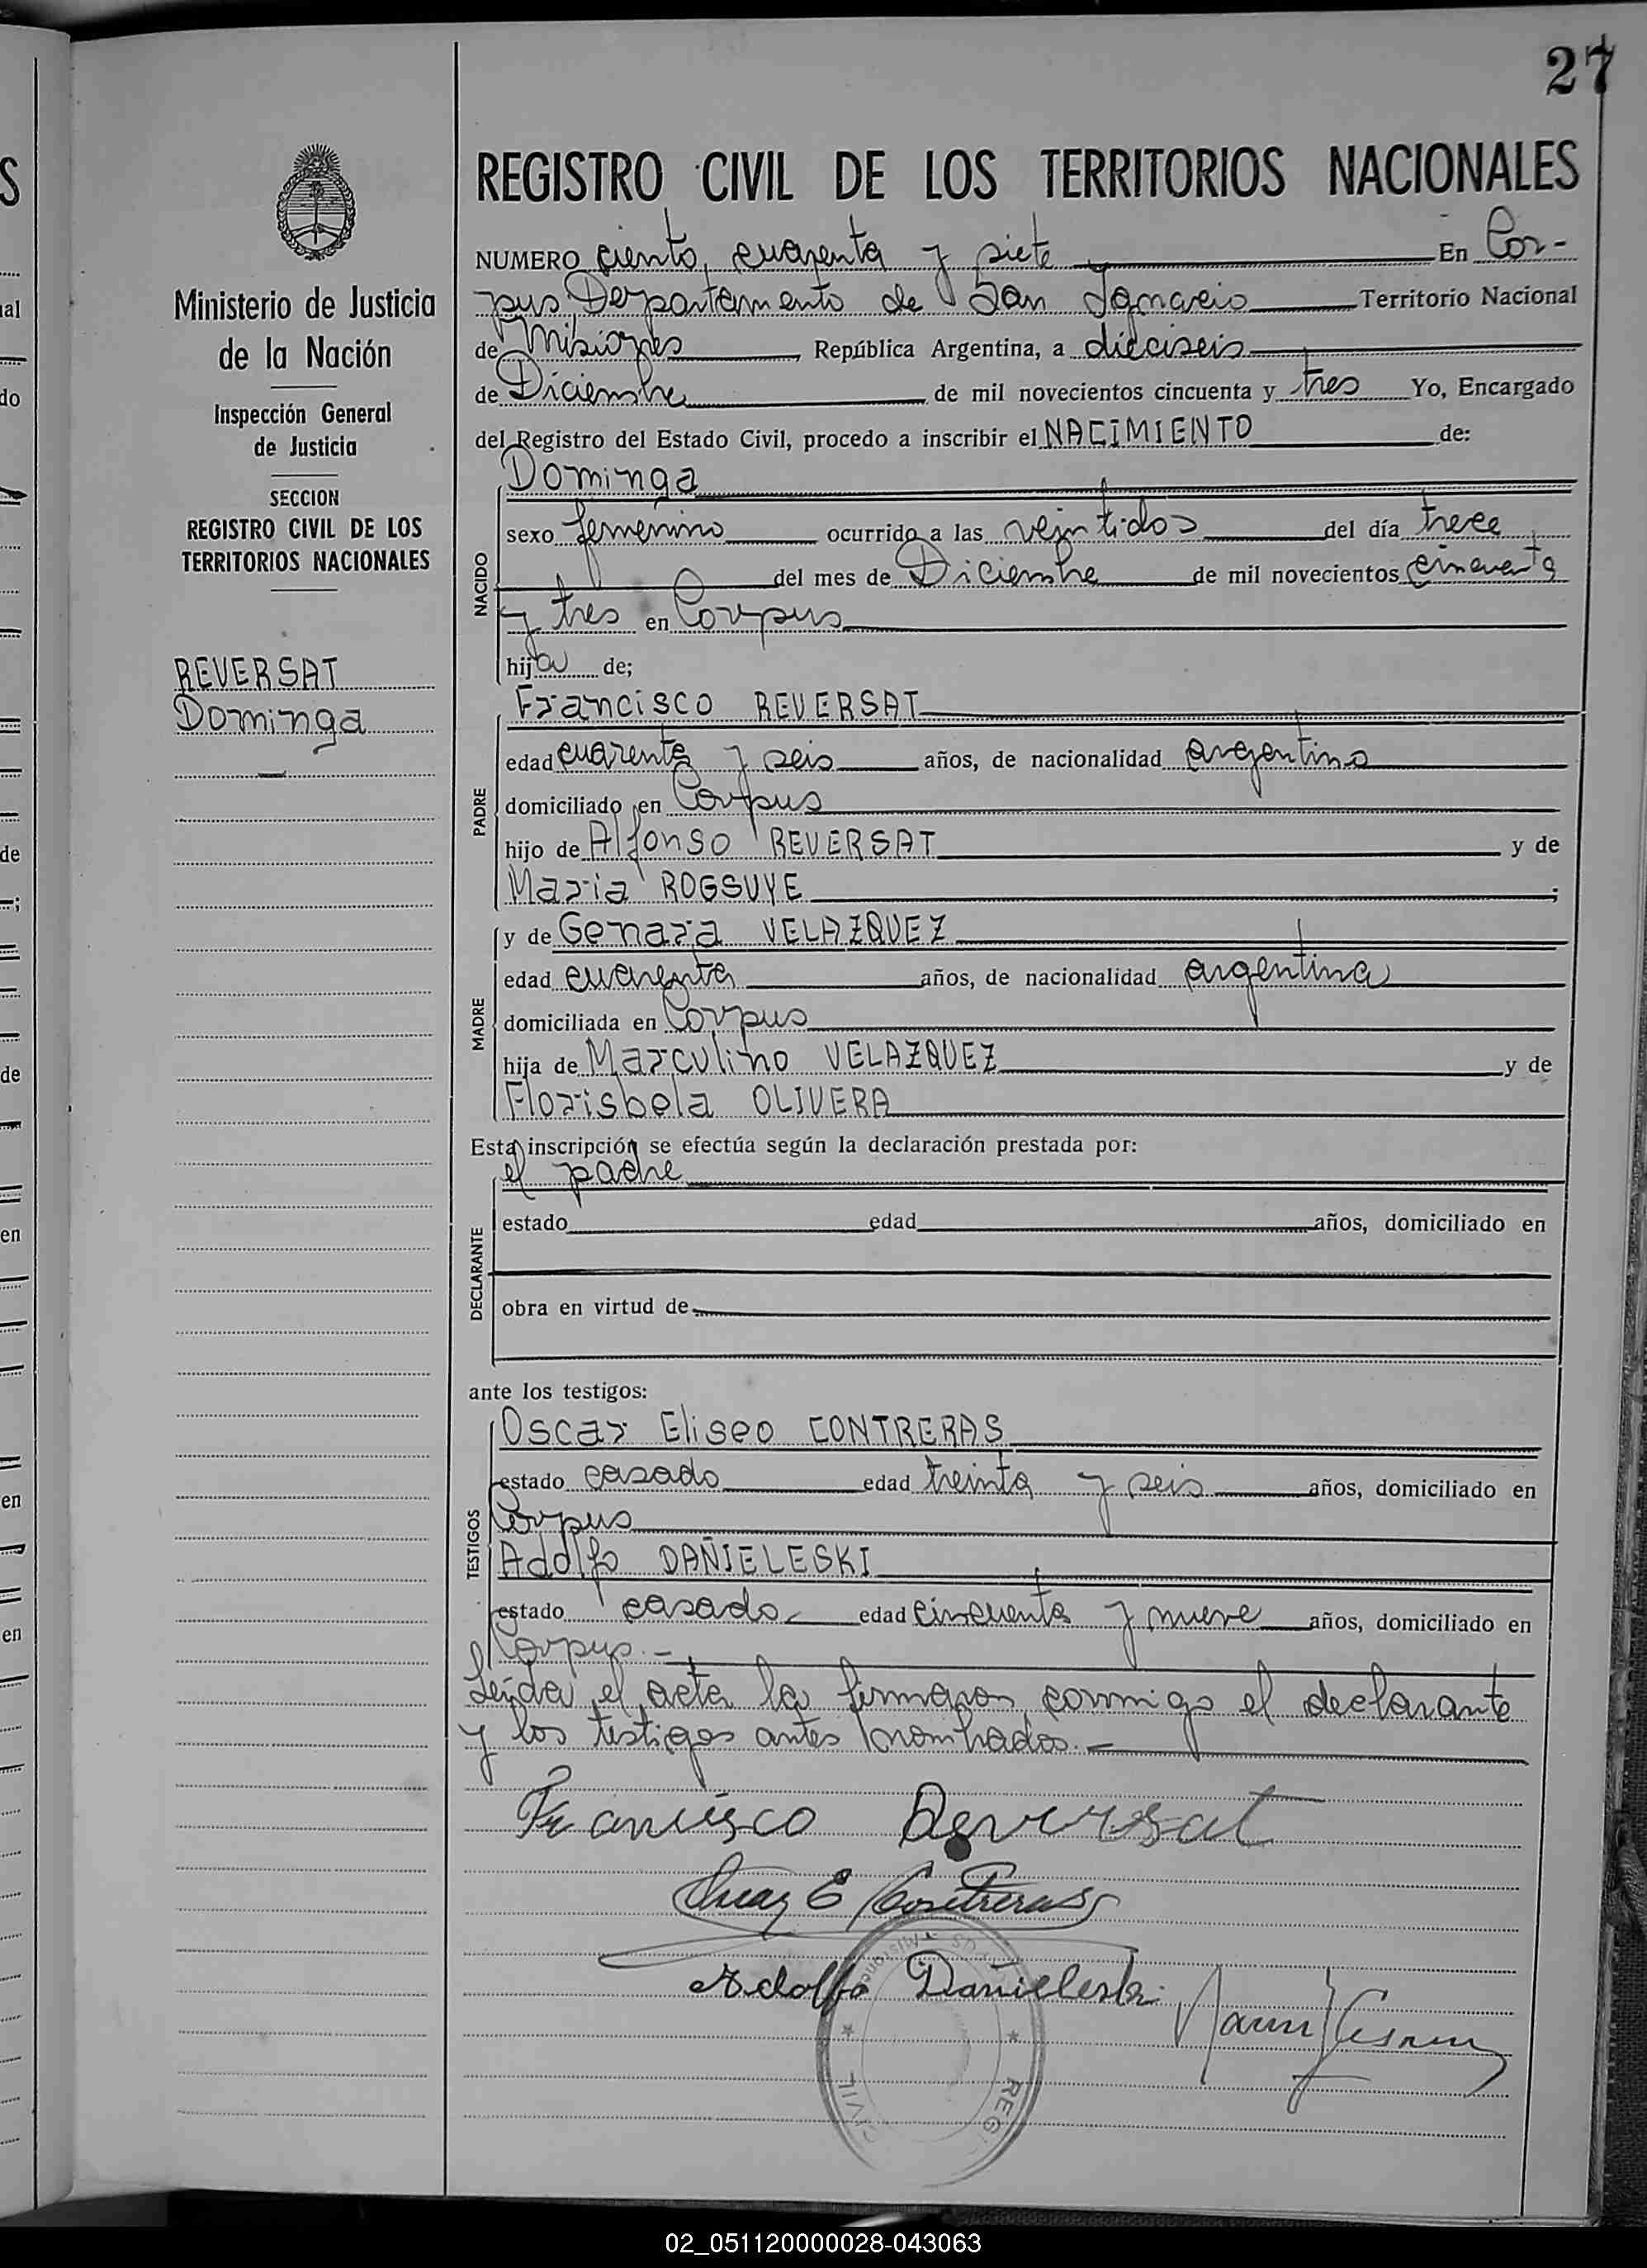 27
REGISTRO CIVIL DE LOS TERRITORIOS NACIONALES
Ministerio de Justicia
de la Nación
Inspección General
de Justicia
SECCION
REGISTRO CIVIL DE LOS
TERRITORIOS NACIONALES
REVERSAT
Dominga
NUMERO ciento, cuarenta y siete En Cor-
pus Departamento de San Ignacio Territorio Nacional
de Misiones, República Argentina, a dieciseis
de Diciembre de mil novecientos cincuenta y tres Yo, Encargado
del Registro del Estado Civil, procedo a inscribir el NACIMIENTO de:
NACIDO
Dominga
sexo femenino ocurrido a las veintidos del día trece
del mes de Diciembre de mil novecientos cincuenta
y tres en Corpus
hija de;
PADRE
Francisco REVERSAT
edad cuarenta y seis años, de nacionalidad argentino
domiciliado en Corpus
hijo de Alfonso REVERSAT y de
Maria ROGSUYE ;
MADRE
y de Genara VELAZQUEZ
edad cuarenta años, de nacionalidad argentina
domiciliada en Corpus
hija de Marculino VELAZQUEZ y de
Florisbela OLIVERA
Esta inscripción se efectúa según la declaración prestada por:
DECLARANTE
el padre
estado edad años, domiciliado en
obra en virtud de
ante los testigos:
TESTIGOS
Oscar Eliseo CONTRERAS
estado casado edad treinta y seis años, domiciliado en
Corpus
Adolfo DAÑIELESKI
estado casado edad cincuenta y nueve años, domiciliado en
Corpus.-
Leida el acta la firmaron conmigo el declarante
y los testigos antes nombrados.-
Francisco Reversat
E Contreras
Adolfo Dañieleski
REGI
CIVIL
02_051120000028-043063